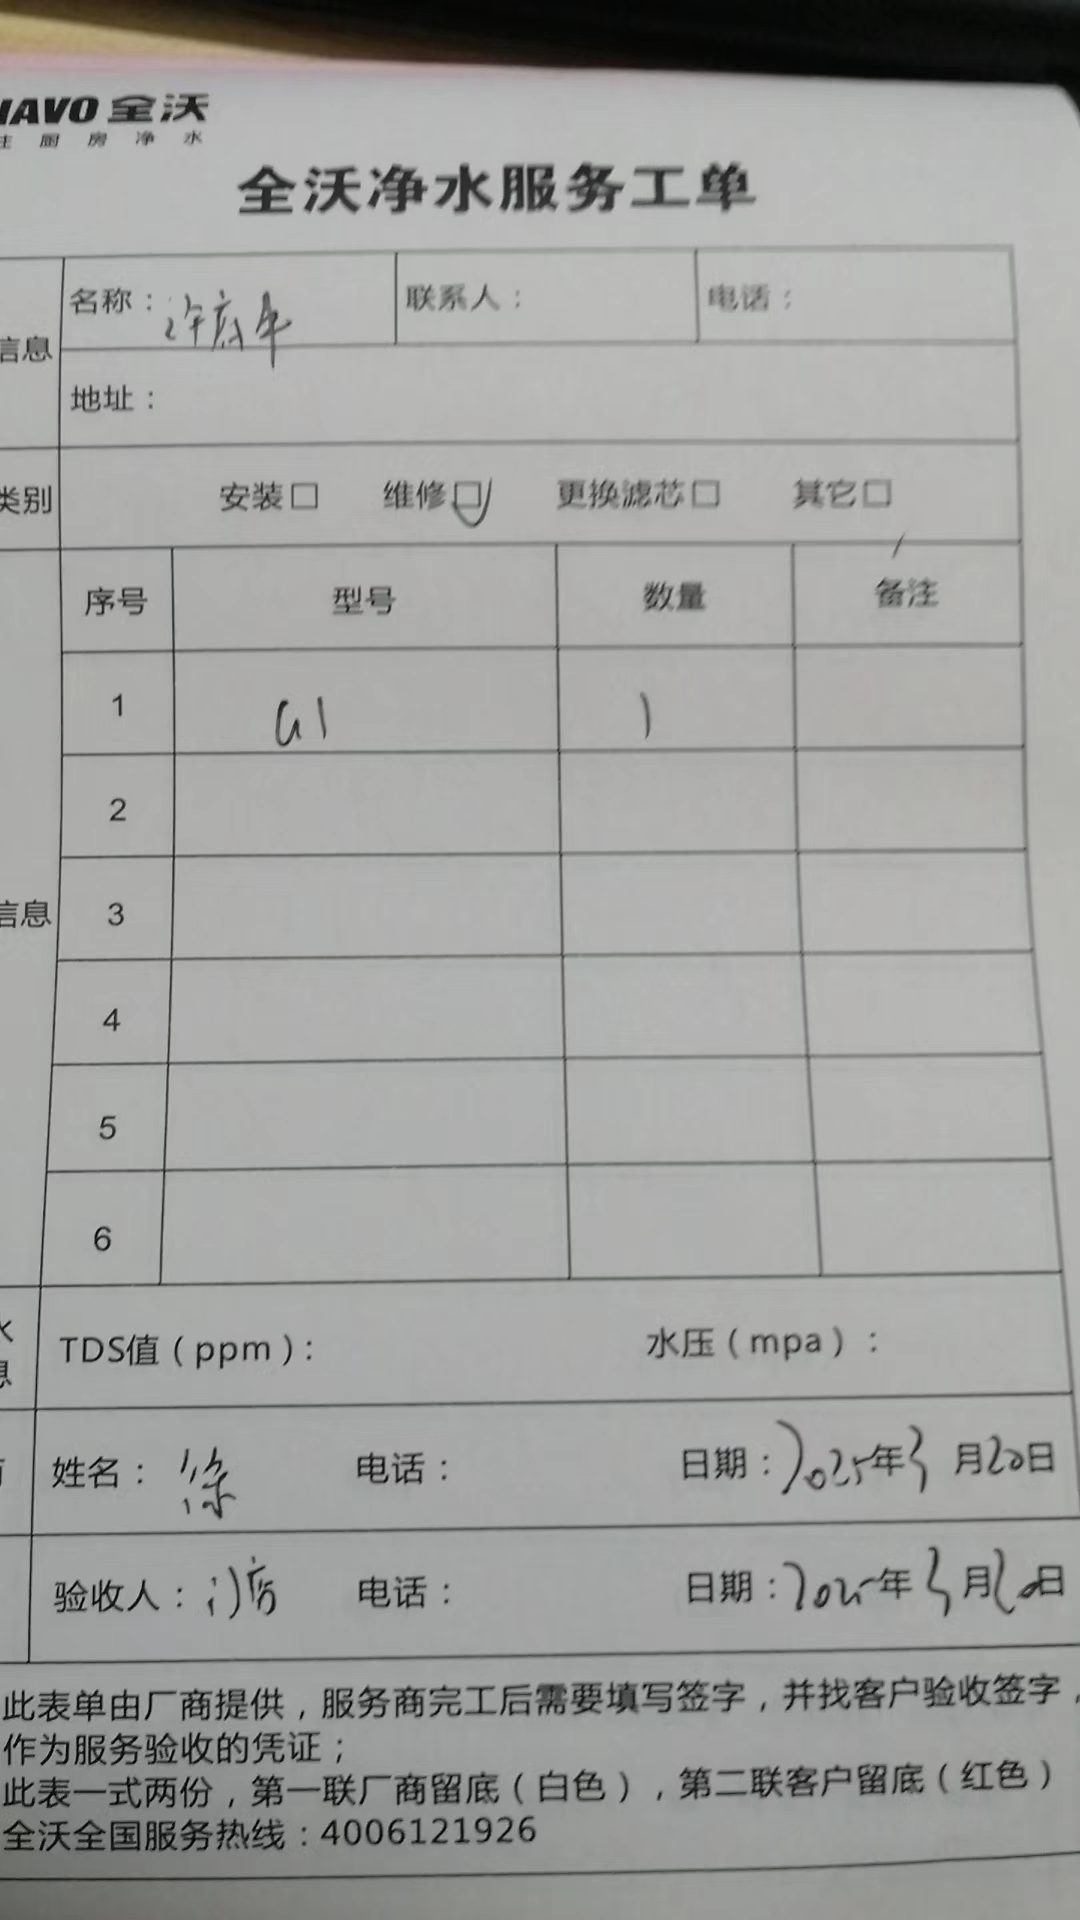 NAVO 全沃
主厨房净水
全沃净水服务工单
信息
名称：
联系人：
电话：
地址：
类别
安装□ 维修□ 更换滤芯□ 其它□
序号 型号 数量 备注
1 G1 1
2
信息
3
4
5
6
水
息
TDS值（ppm）： 水压（mpa）：
姓名：徐 电话： 日期：2025年3月20日
验收人： 电话： 日期：2025年3月20日
此表单由厂商提供，服务商完工后需要填写签字，并找客户验收签字，
作为服务验收的凭证；
此表一式两份，第一联厂商留底（白色），第二联客户留底（红色）
全沃全国服务热线：4006121926